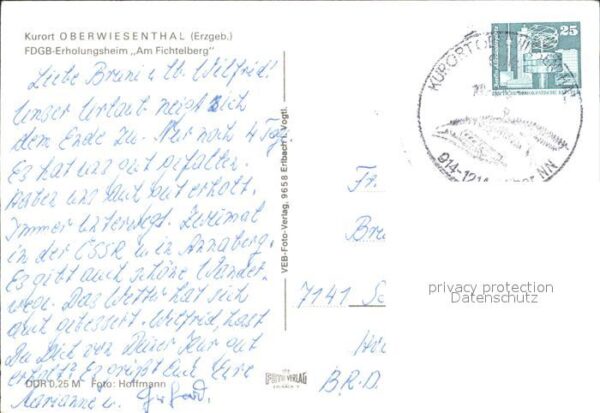 Kurort OBERWIESENTHAL (Erzgeb.)
FDGB-Erholungsheim „Am Fichtelberg"
Liebe Bruni u. lb. Wilfried!
Unser Urlaub neigt sich
dem Ende zu. Nur noch 4 Tg.
Es hat uns gut gefallen.
Haben uns gut erholt.
Immer unterwegs. Zweimal
in der ČSSR u. in Annaberg.
Es gibt auch schöne Wander-
wege. Das Wetter hat sich
auch gebessert. Wilfried, hast
Du Dich von Deiner Kur gut
erholt? Es grüßt Euch Eure
Marianne u. Gerhard.
DDR 0,25 M Foto: Hoffmann
VEB-Foto-Verlag, 9658 Erlbach i. Vogtl.
FOTO VERLAG
25
KURORT
914-1214 NN
Fr.
Bru
7141
B.R.D.
privacy protection
Datenschutz